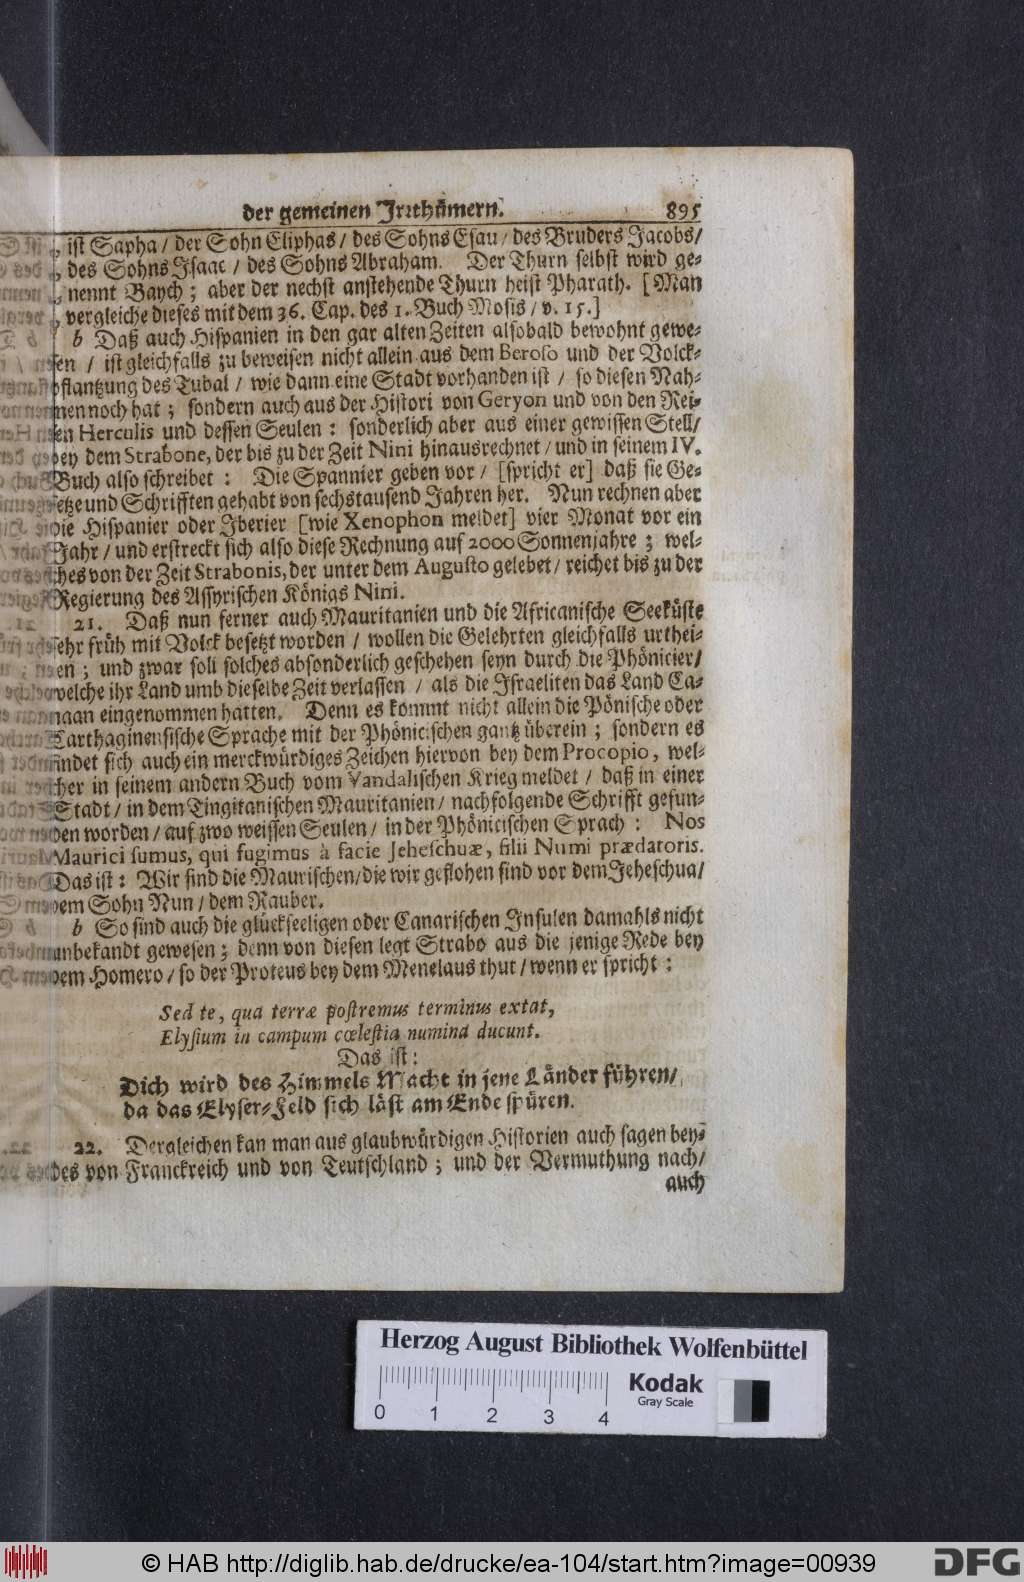 der gemeinen Irrthümern.
895
„ ist Sapha / der Sohn Eliphas / des Sohns Esau / des Bruders Jacobs /
„ des Sohns Isaac / des Sohns Abraham. Der Thurn selbst wird ge-
„ nennt Baych ; aber der nechst anstehende Thurn heist Pharath. [ Man
„ vergleiche dieses mit dem 36. Cap. des 1. Buch Mosis / v. 15. ]
b Daß auch Hispanien in den gar alten Zeiten alsobald bewohnt gewe-
sen / ist gleichfalls zu beweisen nicht allein aus dem Beroso und der Volck-
pflantzung des Tubal / wie dann eine Stadt vorhanden ist / so diesen Nah-
men noch hat ; sondern auch aus der Histori von Geryon und von den Rei-
sen Herculis und dessen Seulen : sonderlich aber aus einer gewissen Stell /
bey dem Strabone, der bis zu der Zeit Nini hinausrechnet / und in seinem IV.
Buch also schreibet : Die Spannier geben vor / [spricht er] daß sie Ge-
setze und Schrifften gehabt von sechstausend Jahren her. Nun rechnen aber
die Hispanier oder Iberier [wie Xenophon meldet] vier Monat vor ein
Jahr / und erstreckt sich also diese Rechnung auf 2000 Sonnenjahre ; wel-
ches von der Zeit Strabonis, der unter dem Augusto gelebet / reichet bis zu der
Regierung des Assyrischen Königs Nini.
21. Daß nun ferner auch Mauritanien und die Africanische Seeküste
sehr früh mit Volck besetzt worden / wollen die Gelehrten gleichfalls urthei-
len ; und zwar soll solches absonderlich geschehen seyn durch die Phönicier /
welche ihr Land umb dieselbe Zeit verlassen / als die Israeliten das Land Ca-
naan eingenommen hatten. Denn es kommt nicht allein die Pönische oder
Carthaginensische Sprache mit der Phönicischen gantz überein ; sondern es
findet sich auch ein merckwürdiges Zeichen hiervon bey dem Procopio, wel-
cher in seinem andern Buch vom Vandalischen Krieg meldet / daß in einer
Stadt / in dem Tingitanischen Mauritanien / nachfolgende Schrifft gefun-
den worden / auf zwo weissen Seulen / in der Phönicischen Sprach : Nos
Maurici sumus, qui fugimus à facie Jeheschuæ, filii Numi prædatoris.
Das ist : Wir sind die Maurischen / die wir geflohen sind vor dem Jeheschua /
dem Sohn Nun / dem Rauber.
b So sind auch die glückseeligen oder Canarischen Insulen damahls nicht
unbekandt gewesen ; denn von diesen legt Strabo aus die jenige Rede bey
dem Homero / so der Proteus bey dem Menelaus thut / wenn er spricht :
Sed te, qua terræ postremus terminus extat,
Elysium in campum cœlestia numina ducunt.
Das ist :
Dich wird des Himmels Macht in jene Länder führen /
da das Elyser-Feld sich läst am Ende spüren.
22. Dergleichen kan man aus glaubwürdigen Historien auch sagen bey-
des von Franckreich und von Teutschland ; und der Vermuthung nach /
auch
Herzog August Bibliothek Wolfenbüttel
0 1 2 3 4
Kodak
Gray Scale
© HAB http://diglib.hab.de/drucke/ea-104/start.htm?image=00939
DFG